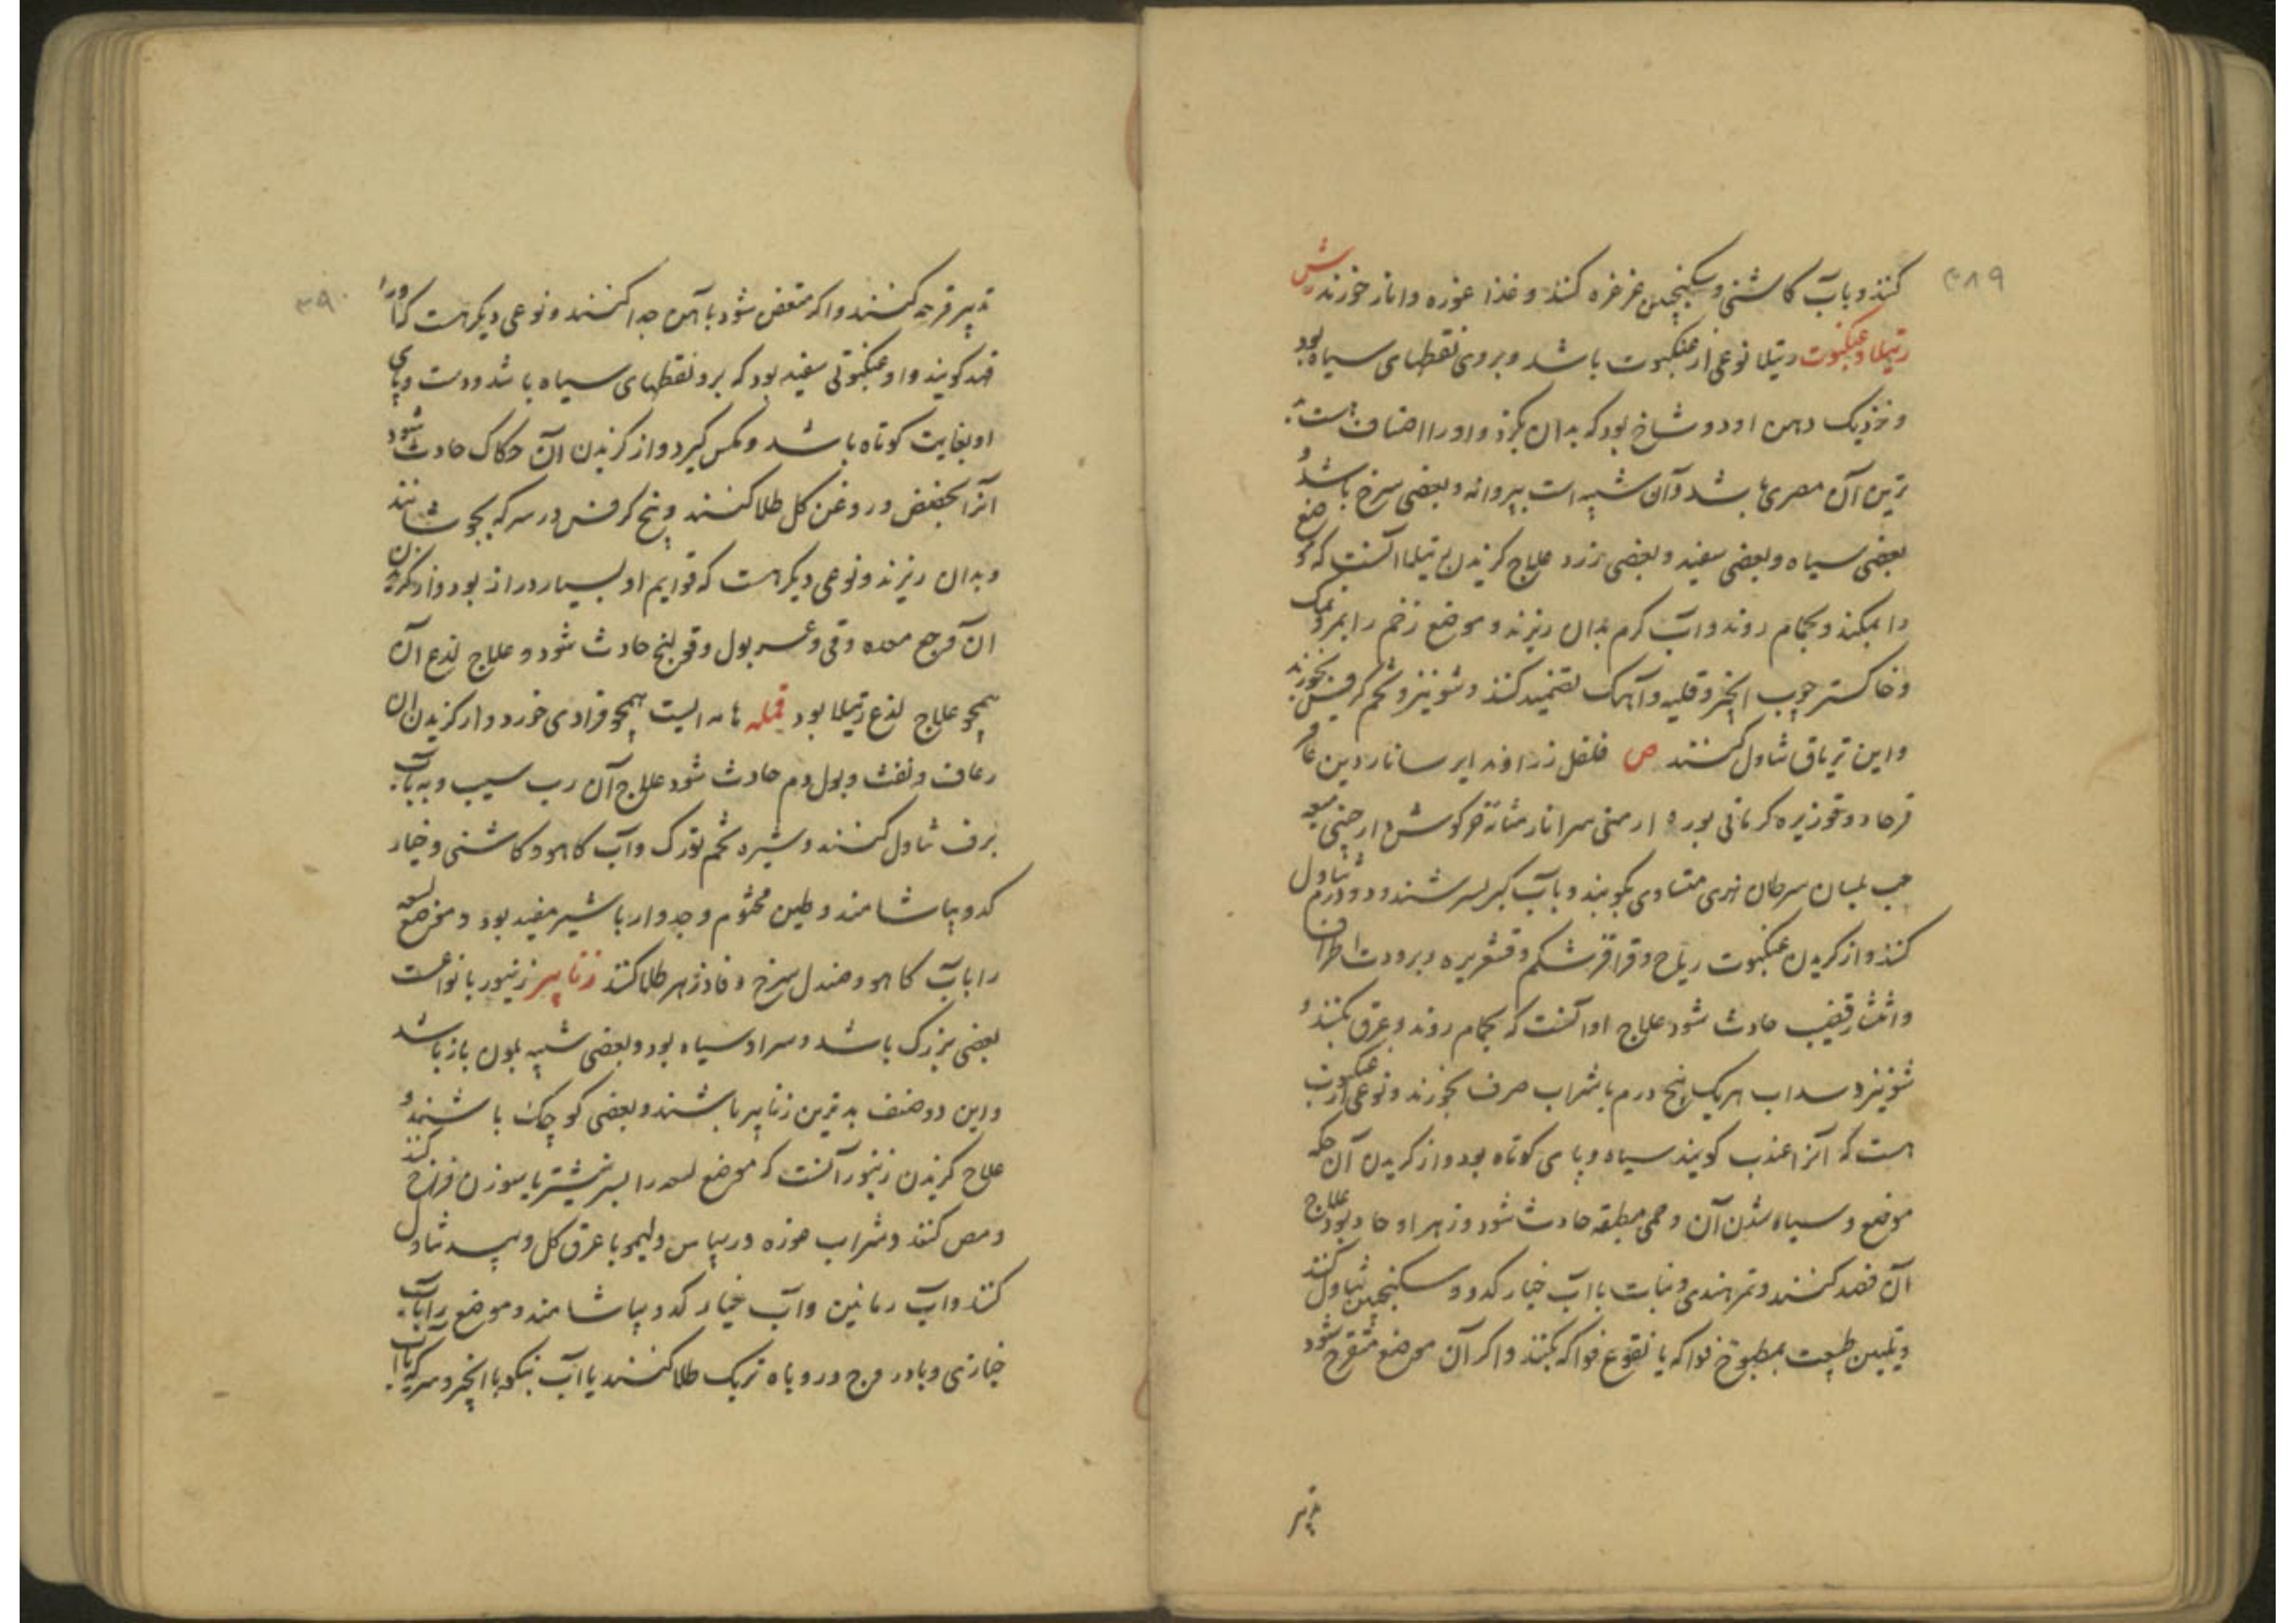 ۳۸۹
کنند و باب کاشنی و سکنجبین غرغره کنند و غذا غوره و انار خورند
رتیلا و عنکبوت رتیلا نوعی از عنکبوت باشد و بروی نقطهای سیاه بود
و نزدیک دهن او دو شاخ بود که بدان بگزد و او را اصناف است
ترین آن مصری باشد و آن شبیه است بپروانه و بعضی سرخ باشد و
بعضی سیاه و بعضی سفید و بعضی زرد علاج گزیدن رتیلا آنست که موضع
را بمکند و بحمام روند و آب کرم بدان ریزند و موضع زخم را بنمک
و خاکستر چوب انجیر و قلیه و آهک تضمید کنند و شونیز و تخم کرفس بخورند
و این تریاق تناول کنند ص فلفل زراوند ایرسا ناردین عاقر
قرحا دوقو زیره کرمانی بوره ارمنی خرکوش
حب بلسان سرطان نهری متساوی بکوبند و باب کبر بسرشند و دو درم تناول
کنند و از کزیدن عنکبوت ریاح و قراقر شکم و قشعریره و برودت اطراف
و انتشار قضیب حادث شود علاج او آنست که بحمام روند و عرق بکنند و
شونیز و سداب هر یک پنج درم با شراب صرف بخورند و نوعی از عنکبوت
هست که آنرا عنذب کویند سیاه و پای کوتاه بود و از کزیدن آن حکه
موضع و سیاه شدن آن و حمی مطبقه حادث شود و زهر او حاد بود علاج
آن فصد کنند و تمرهندی و نبات با آب خیار کدو و سکنجبین تناول کنند
و تلیین طبیعت بمطبوخ فواکه یا نقوع فواکه بکنند و اکر آن موضع متقرح شود
تدبیر
۳۹۰
تدبیر قرحه کنند و اکر متعفن شود بآهن جدا کنند و نوعی دیکر هست که او را
فهد کویند و او عنکبوتی سفید بود که برو نقطهای سیاه باشد و دست و پای
او بغایت کوتاه باشد و مکس کیرد و از کزیدن آن حکاک حادث شود
آنرا بعفص و روغن کل طلا کنند و بیخ کرفس در سرکه بجوشانند
و بدان ریزند و نوعی دیکر هست که قوایم او بسیار دراز بود و از کزیدن
آن وجع معده و قی و عسر بول و قولنج حادث شود و علاج لذع آن
همچو علاج لذع رتیلا بود قمله هامه ایست همچو قرادی خورد و از کزیدن آن
رعاف و نفث و بول دم حادث شود علاج آن رب سیب و به بآب
برف تناول کنند و شیره تخم تورک و آب کاهو و کاشنی و خیار
کدو بیاشامند و طین مختوم و جدوار با شیر مفید بود و موضع لسعه
را باب کاهو و صندل سرخ و فادزهر طلا کنند زنابیر زنبور بانواعست
بعضی بزرک باشد و سر او سیاه بود و بعضی شبیه بلون باز باشد
و این دو صنف بدترین زنابیر باشند و بعضی کوچک باشند و
علاج کزیدن زنبور آنست که موضع لسعه را بسر نیشتر یا سوزن فراخ کنند
و مص کنند و شراب غوره و ریباس و لیمو با عرق کل و بید تناول
کنند و آب رمانین و آب خیار کدو بیاشامند و موضع را بآب
خبازی و بادروج و روباه تربک طلا کنند یا آب نیکو با انجیر و سرکه یا آب